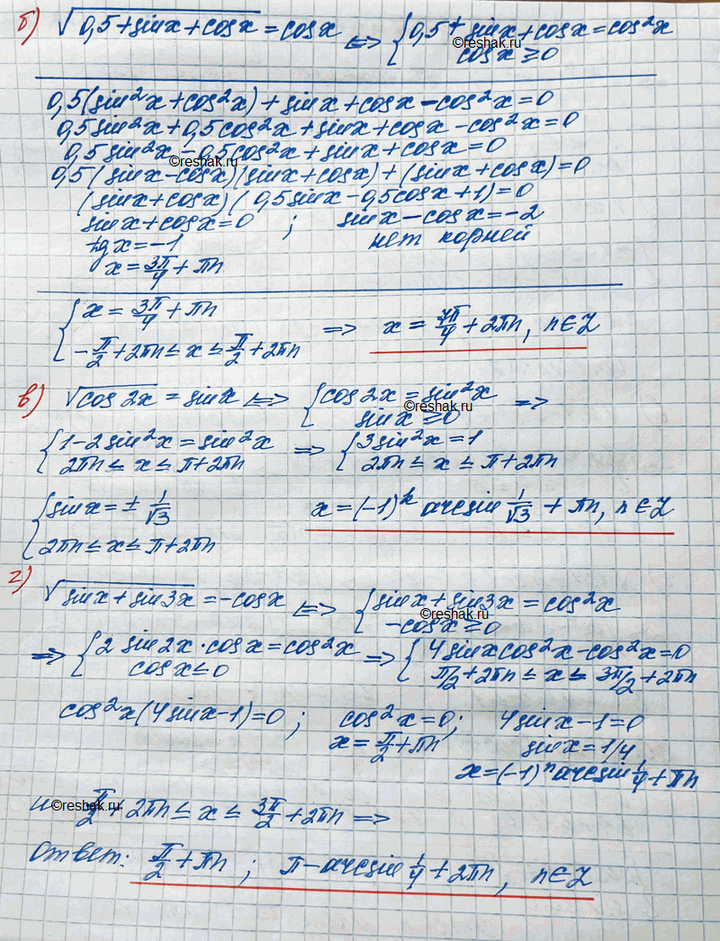 б) √(0,5+sinx+cosx) = cosx <=> { 0,5+sinx+cosx=cos²x
cosx ≥0
©reshak.ru
0,5(sin²x+cos²x)+sinx+cosx-cos²x=0
0,5sin²x+0,5cos²x+sinx+cosx-cos²x=0
0,5sin²x-0,5cos²x+sinx+cosx=0
©reshak.ru
0,5(sinx-cosx)(sinx+cosx)+(sinx+cosx)=0
(sinx+cosx)(0,5sinx-0,5cosx+1)=0
sinx+cosx=0 ; sinx-cosx=-2
tgx=-1 нет корней
x=3π/4+πn
{ x=3π/4+πn
-π/2+2πn≤x≤π/2+2πn => x=7π/4+2πn, n∈Z
в) √(cos2x) = sinx <=> { cos2x=sin²x
sinx ≥0 =>
©reshak.ru
{ 1-2sin²x=sin²x => { 3sin²x=1
2πn≤x≤π+2πn 2πn≤x≤π+2πn
{ sinx=±1/√3 x=(-1)^k arcsin 1/√3 + πn, n∈Z
2πn≤x≤π+2πn
г) √(sinx+sin3x) = -cosx <=> { sinx+sin3x=cos²x
-cosx≥0
©reshak.ru
=> { 2sin2x·cosx=cos²x => { 4sinxcos²x-cos²x=0
cosx≤0 π/2+2πn≤x≤3π/2+2πn
cos²x(4sinx-1)=0 ; cos²x=0; 4sinx-1=0
x=π/2+πn sinx=1/4
x=(-1)ⁿarcsin1/4+πn
©reshak.ru
и π/2+2πn≤x≤3π/2+2πn =>
Ответ: π/2+πn ; π-arcsin1/4+2πn, n∈Z